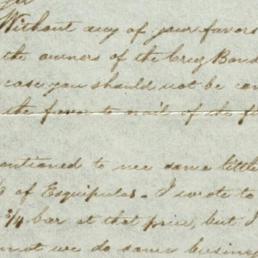 Without any of your favors
the owners of the brig
case you should not be
the favor to of the
mentioned to me some little
of Esquipulas. I wrote to
3/4 bar at that price, but I
not we do some business